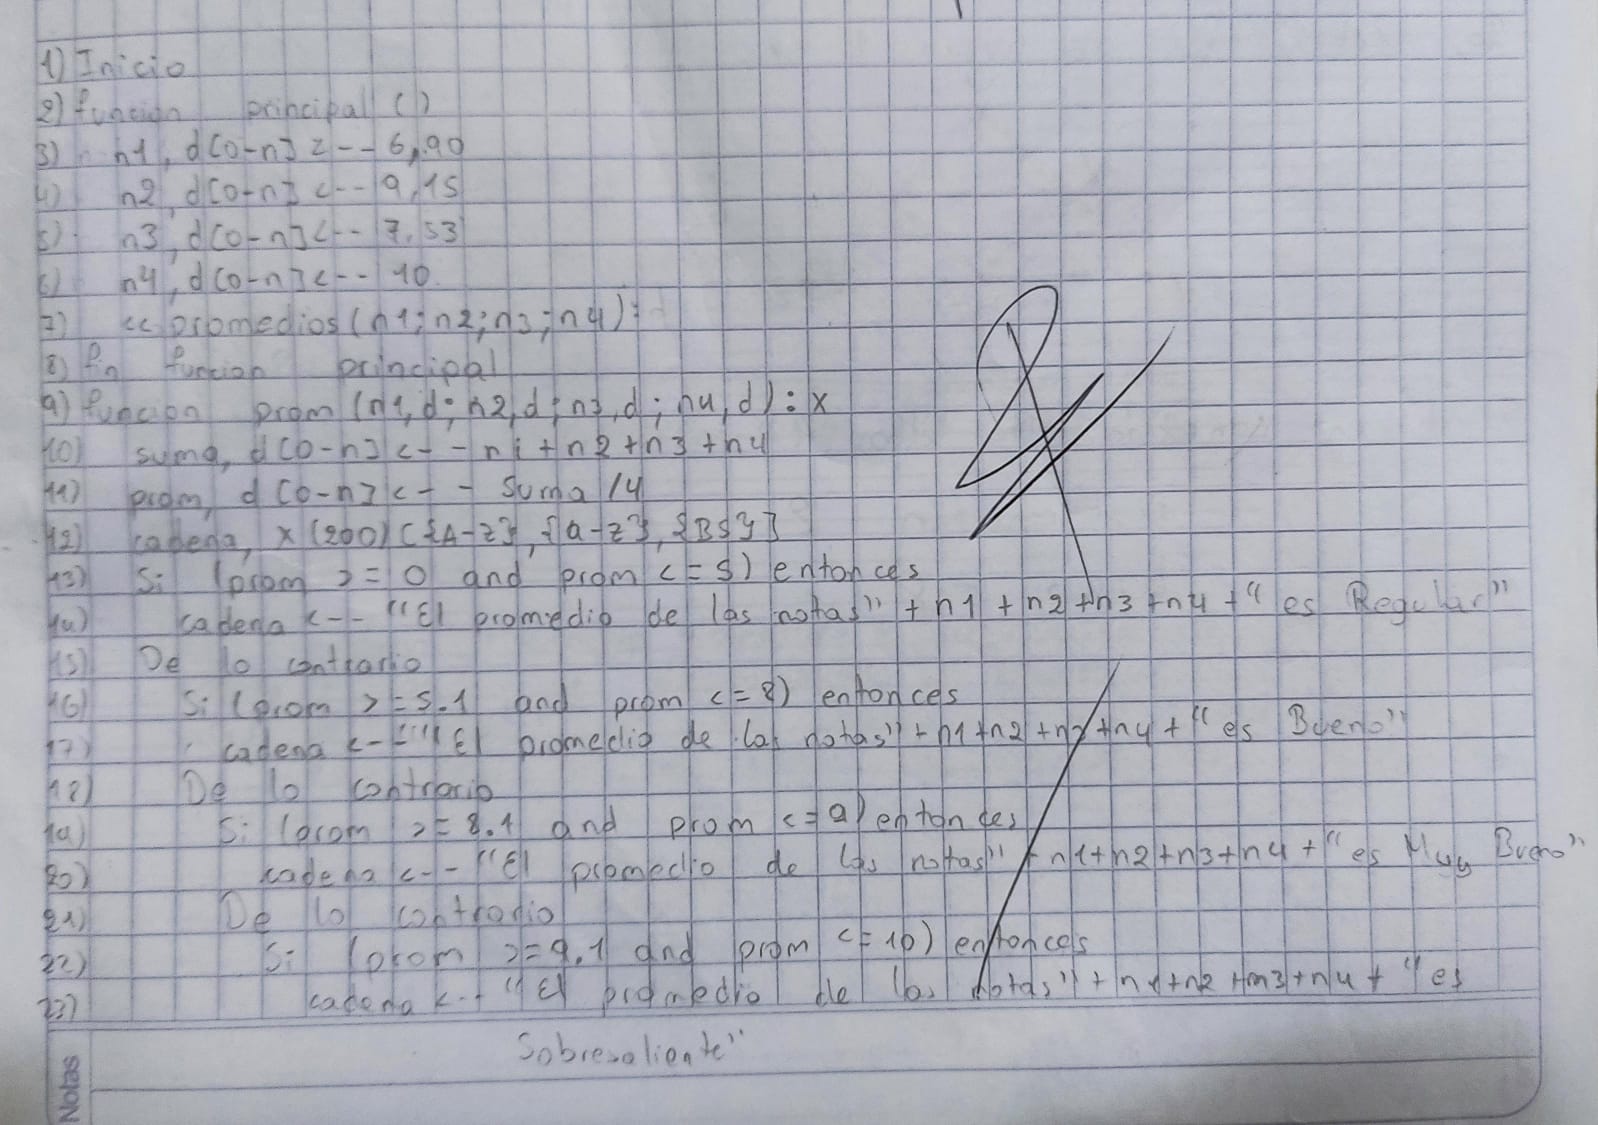 1) Inicio
2) funcion principal ()
3) n1, d[0-n] <-- 6,90
4) n2, d[0-n] <-- 9,15
5) n3, d[0-n] <-- 7,53
6) n4, d[0-n] <-- 10
7) << promedios (n1; n2; n3; n4):
8) fin funcion principal
9) funcion prom (n1, d; n2, d; n3, d; n4, d): x
10) suma, d [0-n] <-- n1 + n2 + n3 + n4
11) prom, d [0-n] <-- suma /4
12) cadena, x (200) [{A-z}, {a-z}, {BS}]
13) Si (prom >= 0 and prom <= 5) entonces
14) cadena <-- "El promedio de las notas" + n1 + n2 + n3 + n4 + "es Regular"
15) De lo contrario
16) Si (prom >= 5.1 and prom <= 8) entonces
17) cadena <-- "El promedio de las notas" + n1 + n2 + n3 + n4 + "es Bueno"
18) De lo contrario
19) Si (prom >= 8.1 and prom <= 9) entonces
20) cadena <-- "El promedio de las notas" + n1+n2+n3+n4 + "es Muy Bueno"
21) De lo contrario
22) Si (prom >= 9.1 and prom <= 10) entonces
23) cadena <-- "El promedio de las notas" + n1+n2 +n3+n4 + "es
Sobresaliente"
Notas